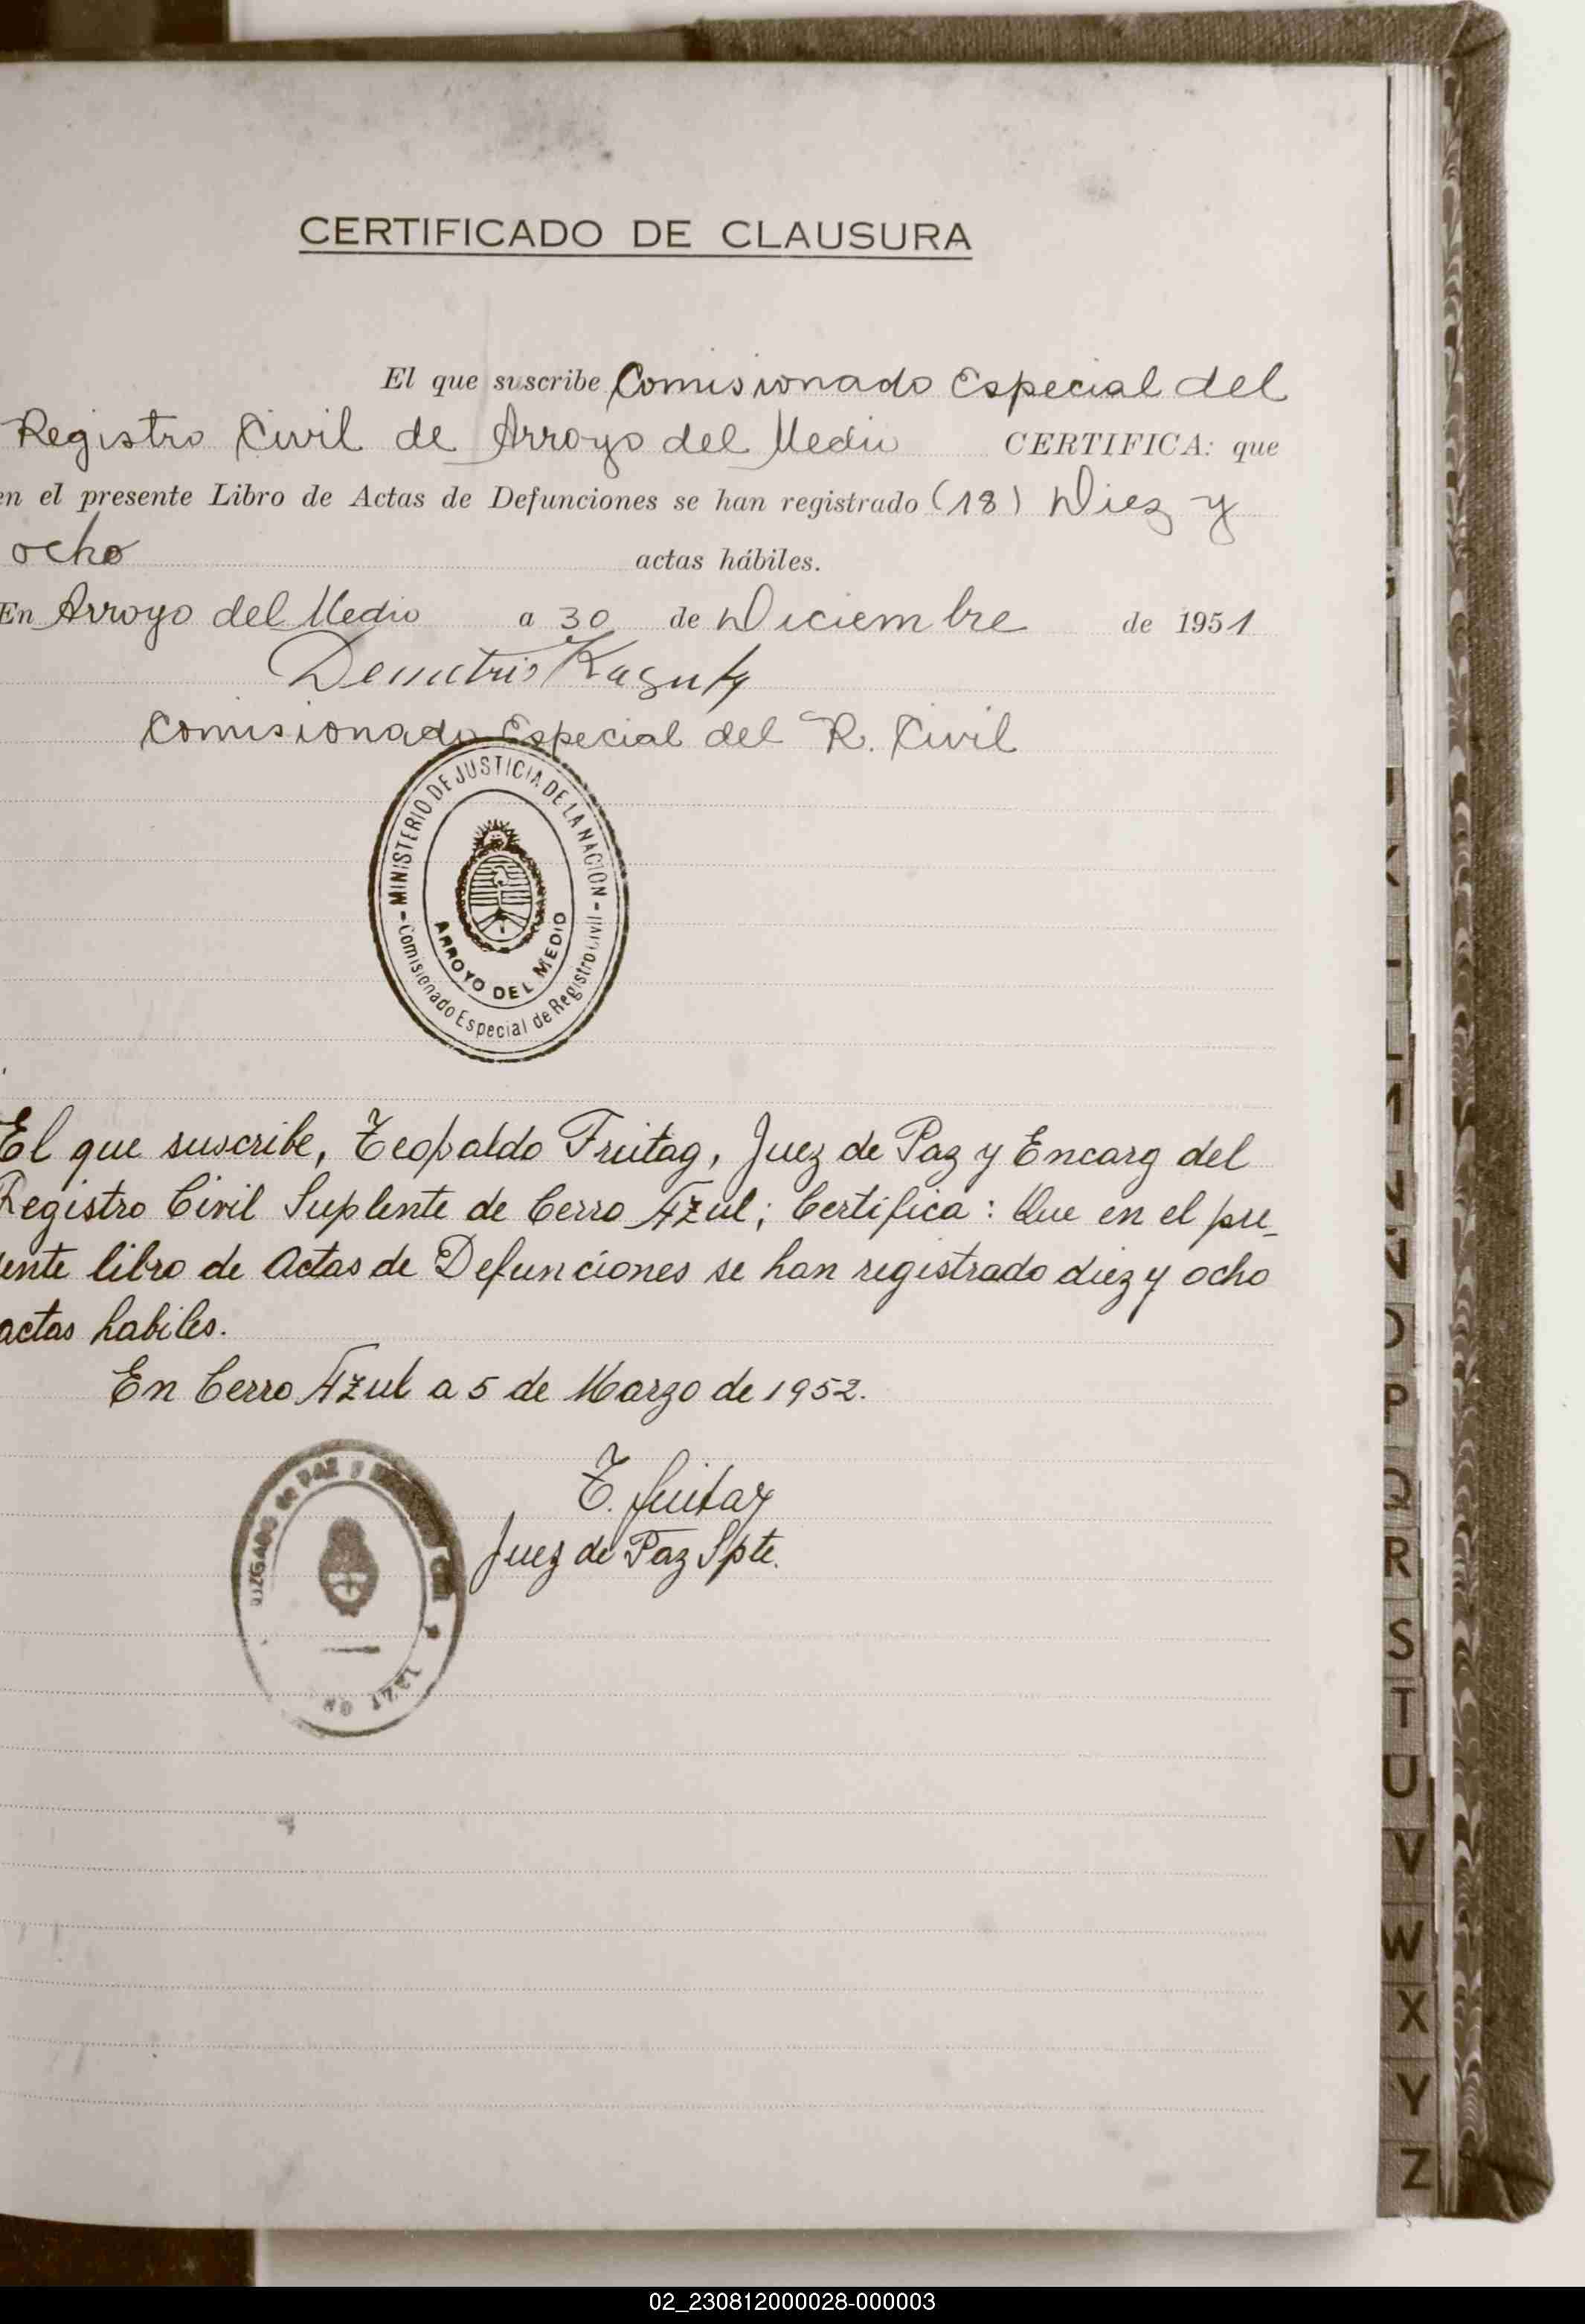 CERTIFICADO DE CLAUSURA
El que suscribe Comisionado Especial del
Registro Civil de Arroyo del Medio CERTIFICA: que
en el presente Libro de Actas de Defunciones se han registrado (18) Diez y
ocho actas hábiles.
En Arroyo del Medio a 30 de Diciembre de 1951
Demetrio
Comisionado Especial del R. Civil
- MINISTERIO DE JUSTICIA DE LA NACION -
Comisionado Especial de Registro Civil
ARROYO DEL MEDIO
El que suscribe, Teopaldo Freitag, Juez de Paz y Encarg del
Registro Civil Suplente de Cerro Azul; Certifica: Que en el pre-
ente libro de Actas de Defunciones se han registrado diez y ocho
actas habiles.
En Cerro Azul a 5 de Marzo de 1952.
T. Freitag
Juez de Paz Spte.
JUZGADO de PAZ Y
L
M
N
O
P
Q
R
S
T
U
V
W
X
Y
Z
02_230812000028-000003